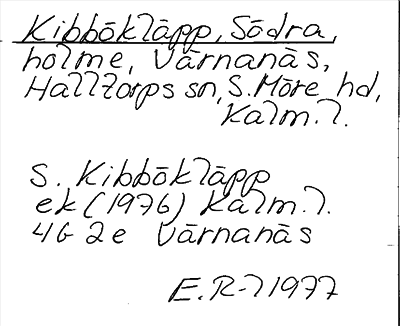 Kibbōklāpp, Södra,
holme, Vārnanās,
Halltorps sn, S. Möre hd,
Kalm. l.
S. Kibbōklāpp
ek (1976) Kalm. l.
4G 2e Vārnanās
E. R-l 1977